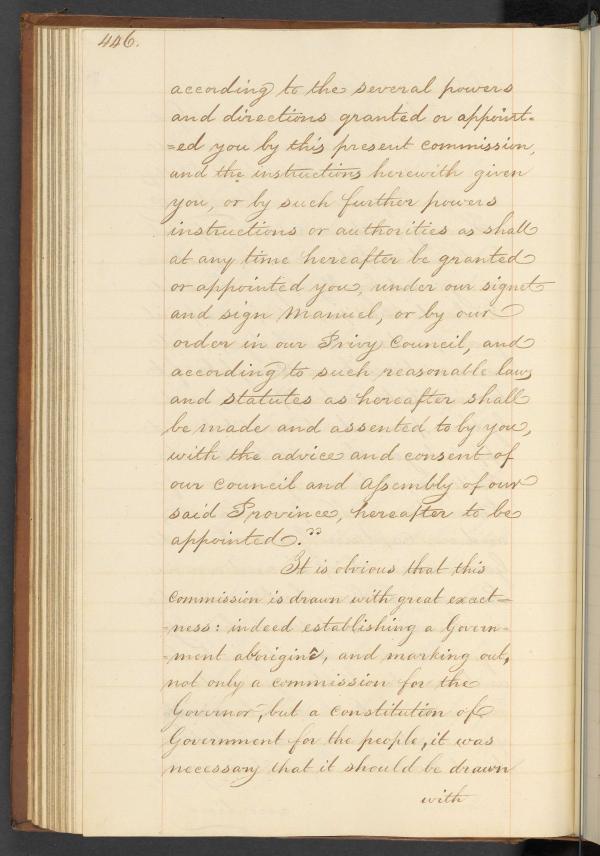 446.
according to the several powers
and directions granted or appoint-
=ed you by this present commission,
and the instructions herewith given
you, or by such further powers
instructions or authorities as shall
at any time hereafter be granted
or appointed you, under our signet
and sign Manuel, or by our
order in our Privy Council, and
according to such reasonable laws
and statutes as hereafter shall
be made and assented to by you,
with the advice and consent of
our Council and Assembly of our
said Province, hereafter to be
appointed."
It is obvious that this
commission is drawn with great exact=
=ness: indeed establishing a Govern=
=ment aborigine, and marking out,
not only a commission for the
Governor, but a constitution of
Government for the people, it was
necessary that it should be drawn
with